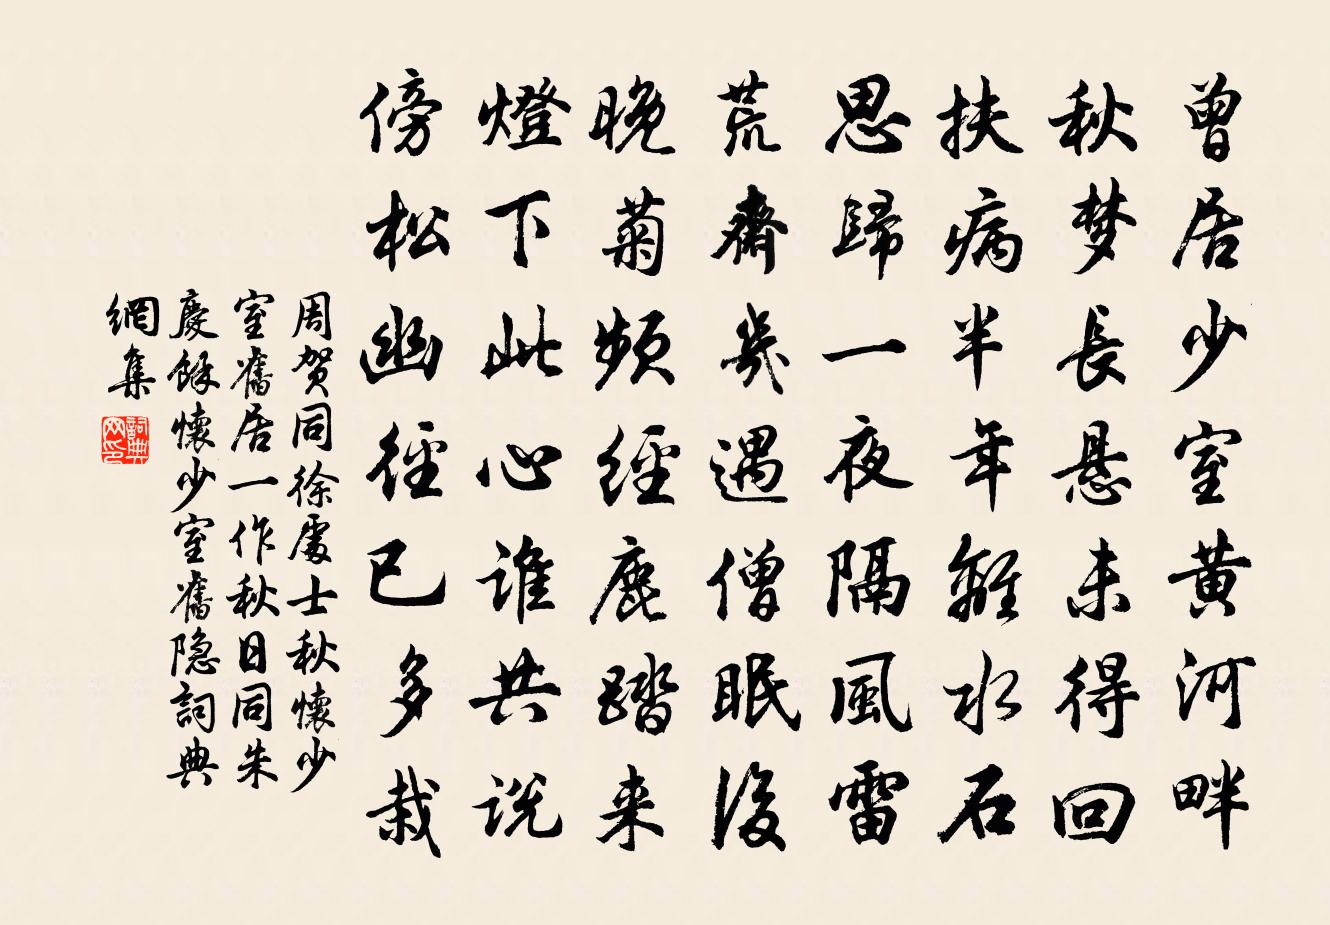 曾居少室黄河畔
秋梦長悬未得回
扶病半年離水石
思歸一夜隔風雷
荒齋幾遇僧眠後
晚菊频經鹿踏来
燈下此心谁共说
傍松幽徑已多栽
周贺同徐處士秋懷少
室舊居一作秋日同朱
慶餘懷少室舊隐詞典
網集
詞典
网印